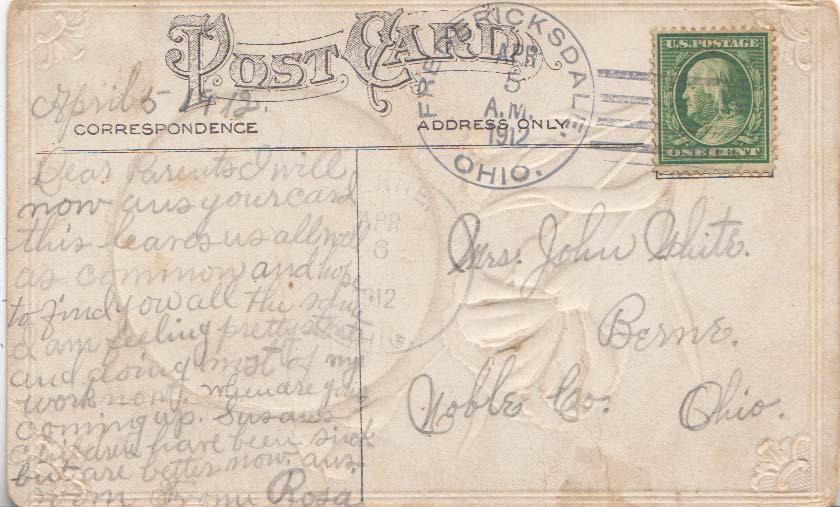 POST CARD
April 5 1912.
CORRESPONDENCE
ADDRESS ONLY
FREDERICKSDALE
APR
5
A.M.
1912
OHIO.
U.S. POSTAGE
ONE CENT
Dear Parents I will
now ans your card
this leaves us all well
as common and hope
to find you all the same
I am feeling pretty stout
and doing most of my
work now. when are you
coming up. Susans
children have been sick
but are better now. ans
soon From Rosa
BERNE,
APR
6
1912
OHIO.
Mrs. John White.
Berne.
Noble Co. Ohio.